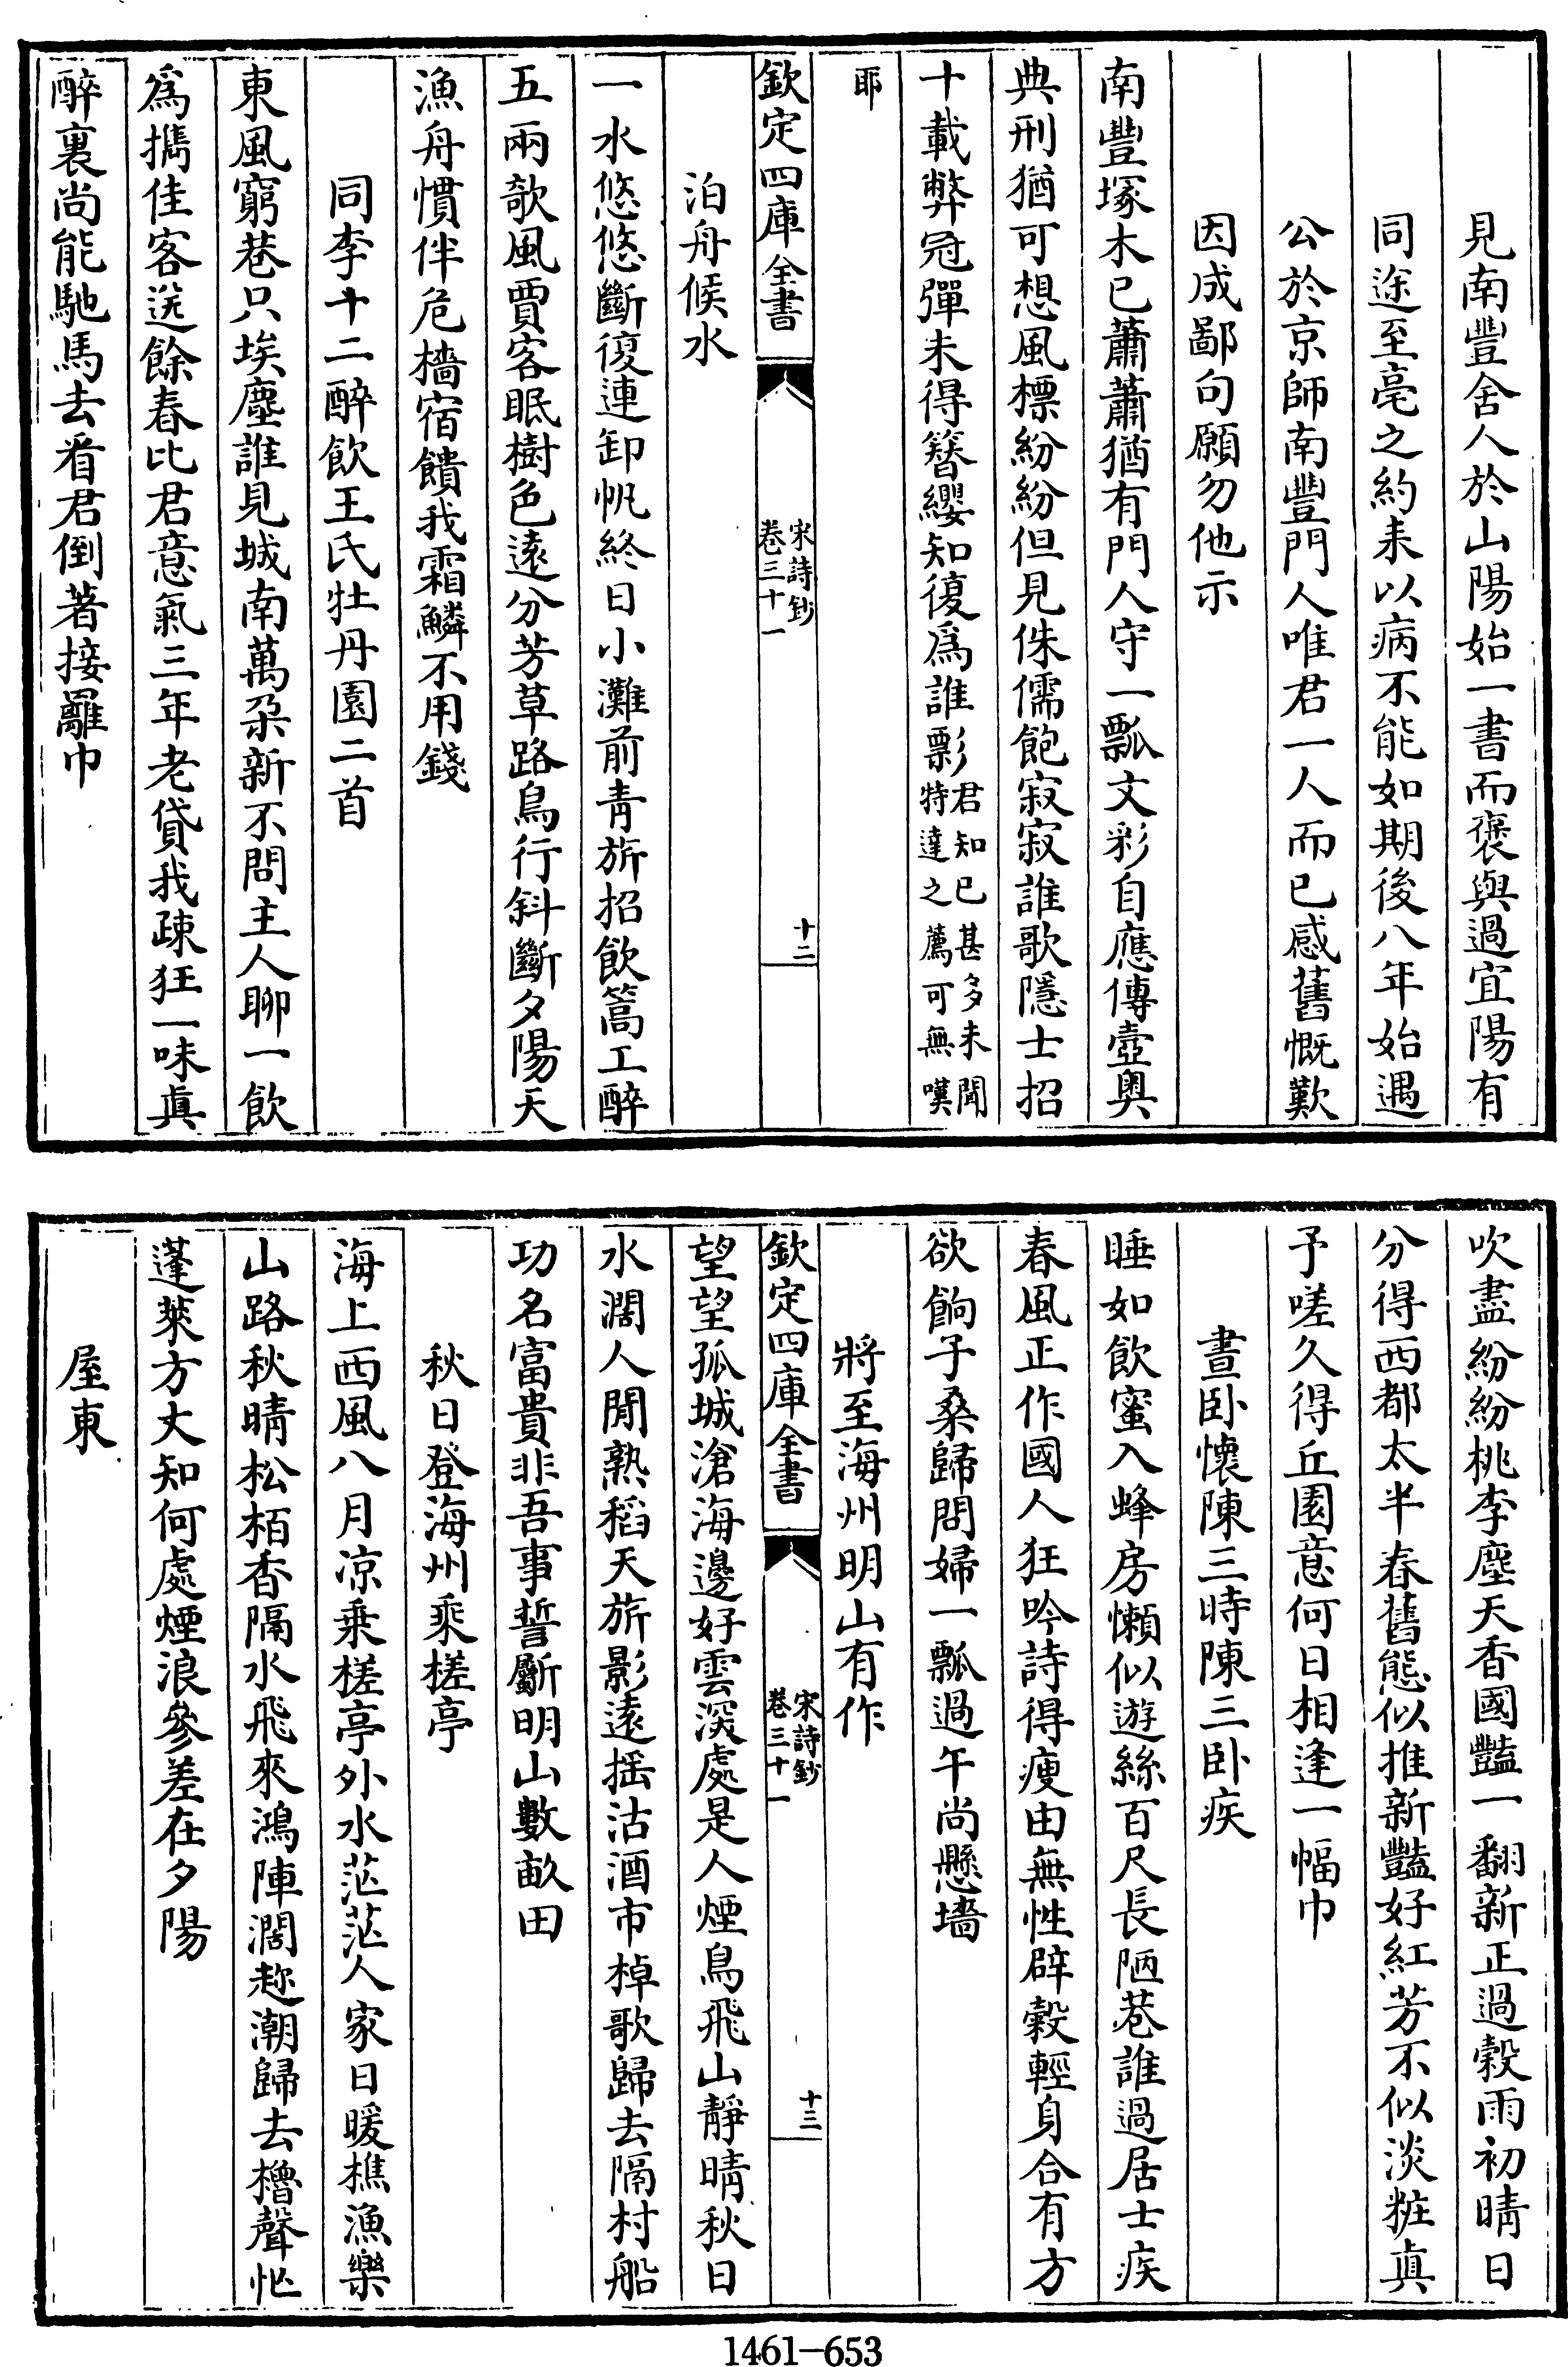 見南豐舍人於山陽始一書而褒與過宜陽有
同途至亳之約耒以病不能如期後八年始遇
公於京師南豐門人唯君一人而已感舊慨歎
因成鄙句願勿他示
南豐塚木已蕭蕭猶有門人守一瓢文彩自應傳壼奥
典刑猶可想風標紛紛但見侏儒飽寂寂誰歌隱士招
十載弊冠彈未得簪纓知復爲誰彯君知已甚多未聞特達之薦可無嘆
耶
欽定四庫全書
宋詩鈔
卷三十一
十二
泊舟候水
一水悠悠斷復連卸帆終日小灘前青旂招飲篙工醉
五兩欹風賈客眠樹色遠分芳草路鳥行斜斷夕陽天
漁舟慣伴危檣宿饋我霜鱗不用錢
同李十二醉飲王氏牡丹園二首
東風窮巷只埃塵誰見城南萬朶新不問主人聊一飲
爲攜佳客送餘春比君意氣三年老貸我疎狂一味真
醉裏尚能馳馬去看君倒著接䍦巾
吹盡紛紛桃李塵天香國豔一翻新正過榖雨初晴日
分得西都太半春舊態似推新豔好紅芳不似淡粧真
予嗟久得丘園意何日相逢一幅巾
晝卧懷陳三時陳三卧疾
睡如飲蜜入蜂房懶似遊絲百尺長陋巷誰過居士疾
春風正作國人狂吟詩得瘦由無性辟榖輕身合有方
欲餉子桑歸問婦一瓢過午尚懸墻
將至海州明山有作
欽定四庫全書
宋詩鈔
卷三十一
十三
望望孤城滄海邊好雲深處是人煙鳥飛山靜晴秋日
水濶人閒熟稻天旂影遠揺沽酒市棹歌歸去隔村船
功名富貴非吾事誓斸明山數畝田
秋日登海州乘槎亭
海上西風八月凉乘槎亭外水茫茫人家日暖樵漁樂
山路秋晴松栢香隔水飛來鴻陣濶趂潮歸去櫓聲忙
蓬萊方丈知何處煙浪參差在夕陽
屋東
1461—653